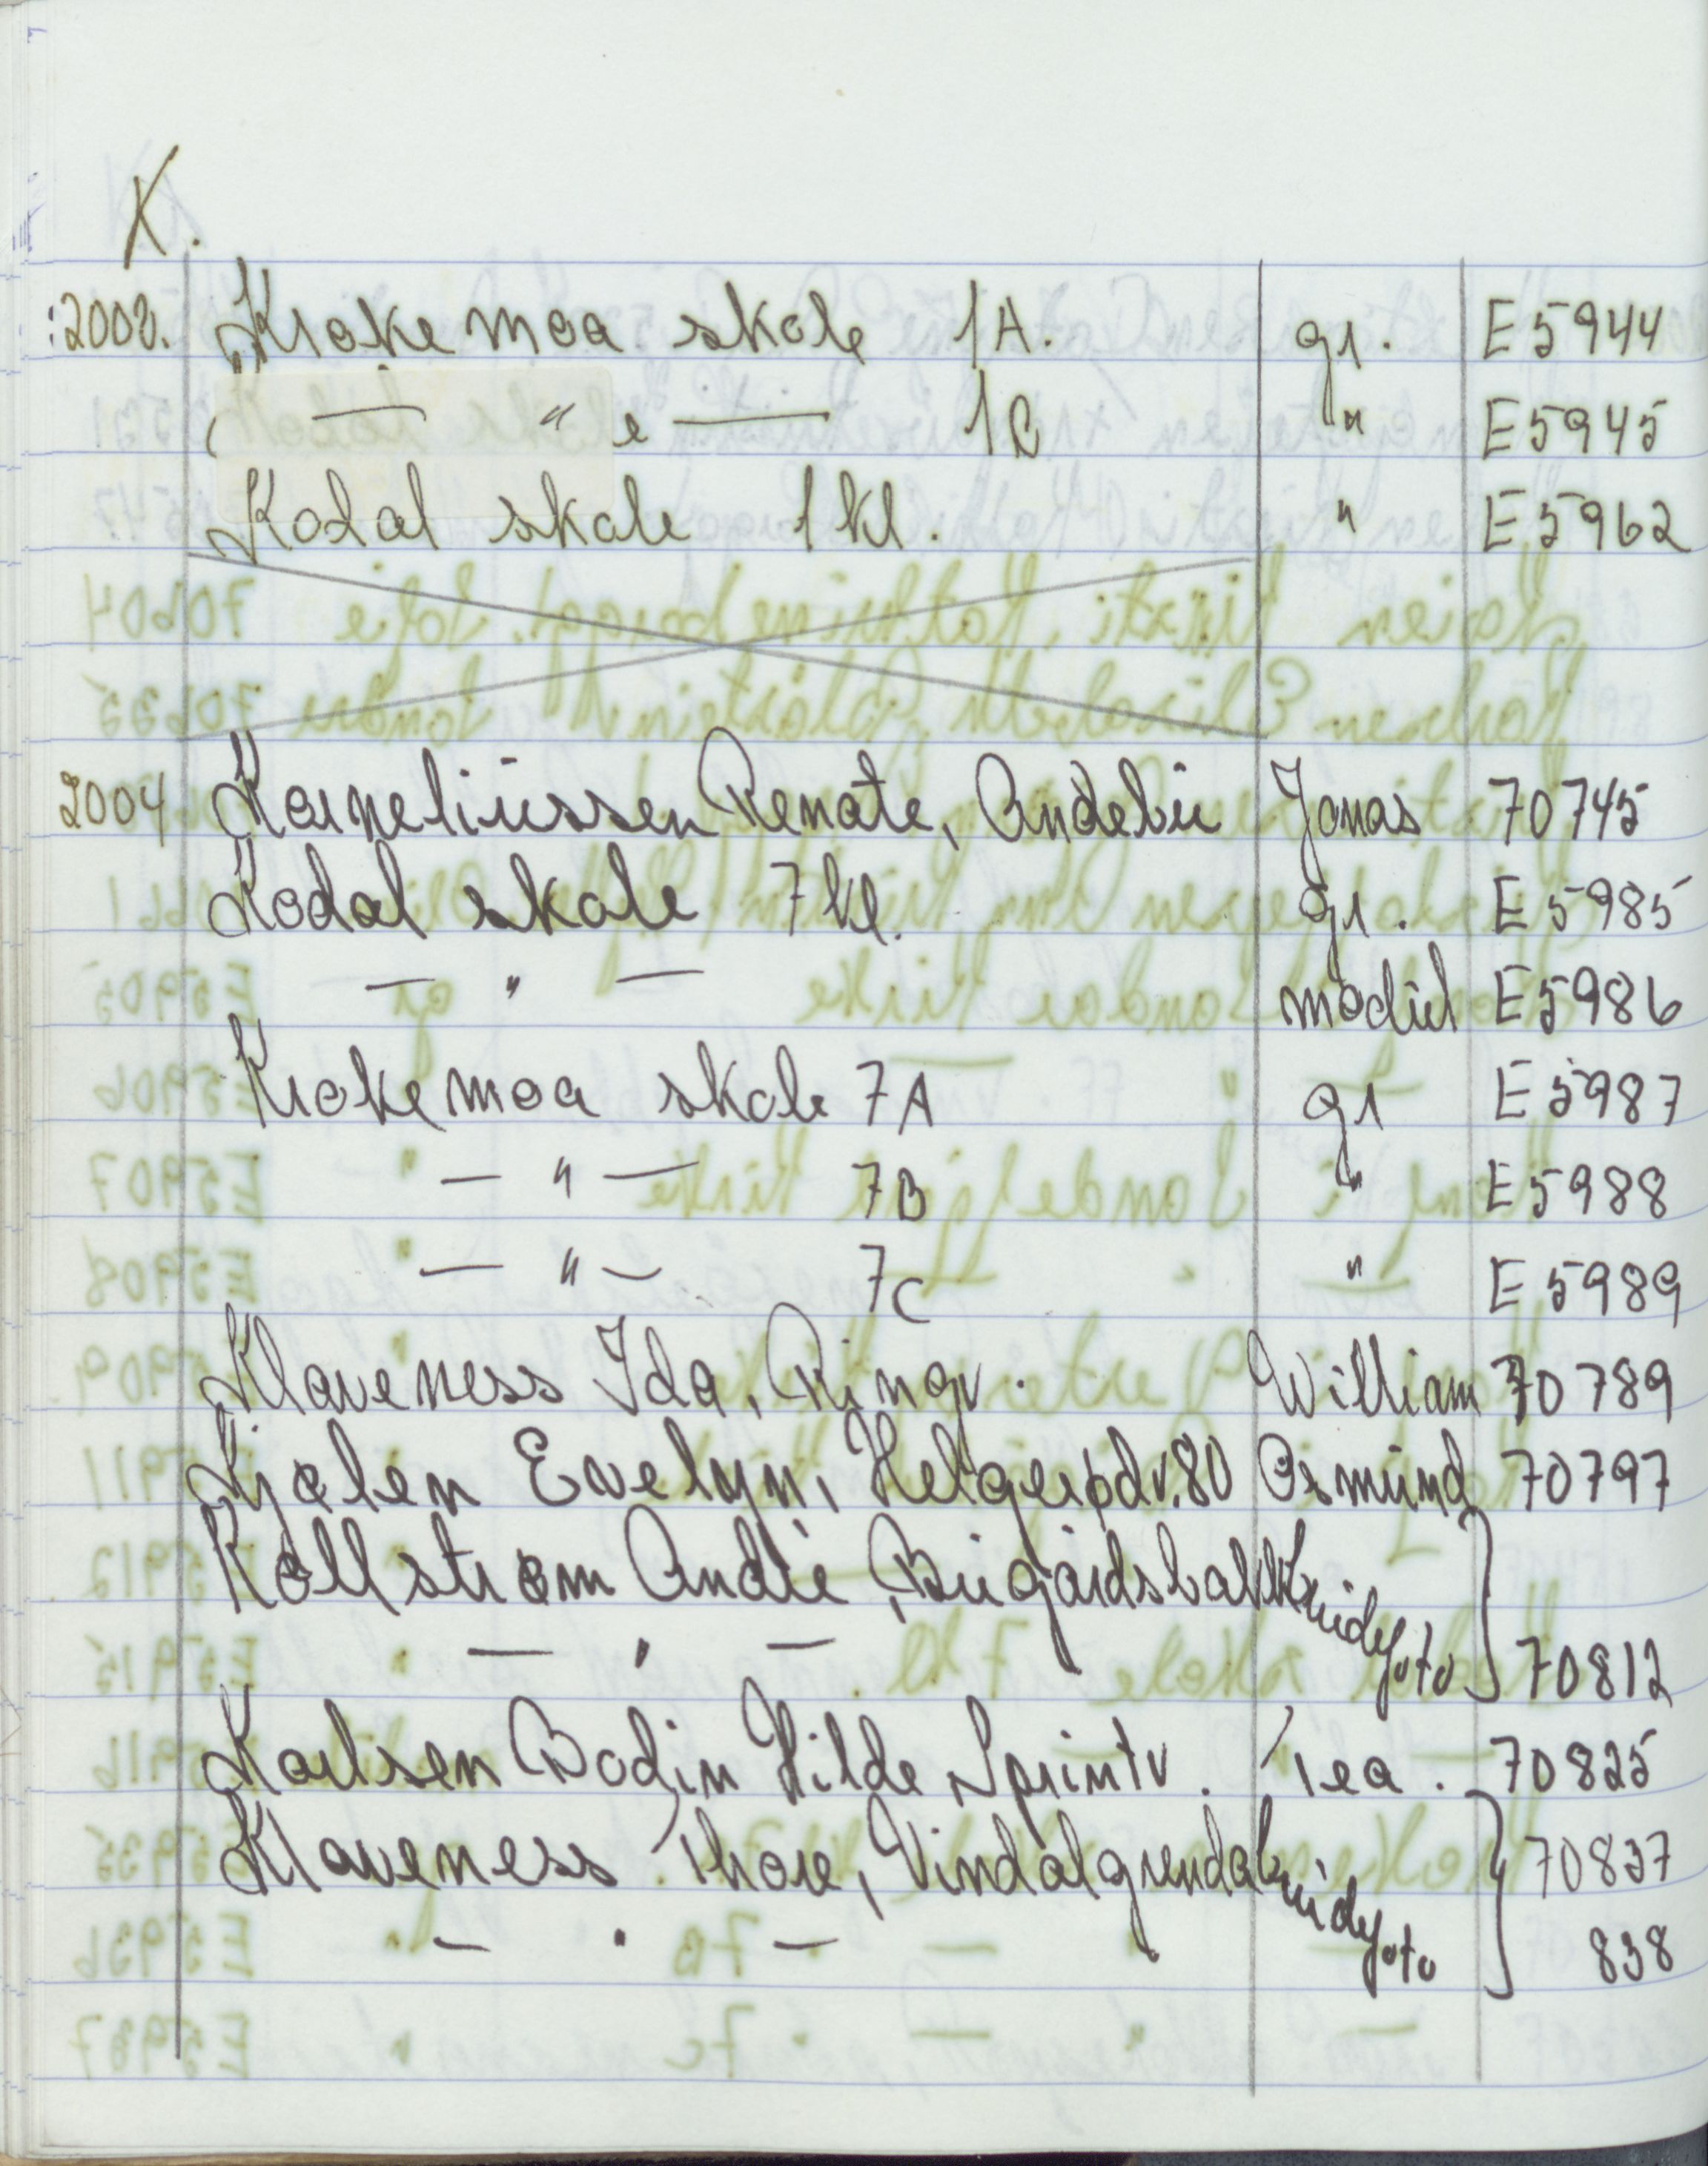 K.
:2002. Krokemoa skole 1A. gr. E5944
— " — 1C " E5945
Kodal skole 1 kl. " E5962
2004 Korneliussen Renate, Andebu Jonas 70745
Kodal skole 7 kl. gr. E5985
— " — modul E5986
Krokemoa skole 7A gr E5987
— " — 7B " E5988
— " — 7C " E5989
Klaveness Ida, Ringv. William 70789
Kjølen Evelyn, Helgerødv.80 Osmund 70797
Kollstrøm André, Bugårdsbakk
— " — 70812
Karlsen Bodin Hilde Sprintv. Tea. 70825
Klaveness Thore, Vindalgrenda 70837
— " — 838